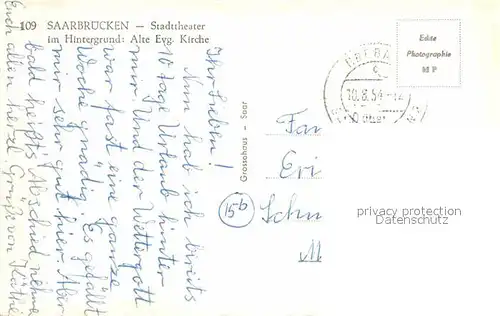 109 SAARBRÜCKEN – Stadttheater
im Hintergrund: Alte Evg. Kirche
Echte
Photographie
M P
10.8.54-12
Ihr Lieben!
Nun hab ich bereits
10 Tage Urlaub hinter
mir. Und der Wettergott
war fast eine ganze
Woche gnädig. Es gefällt
mir sehr gut hier. Aber
bald heißt's Abschied nehmen
Euch allen herzl. Grüße von Käthe
Grossohaus – Saar
15b
Fam
Eri
Schm
M
privacy protection
Datenschutz